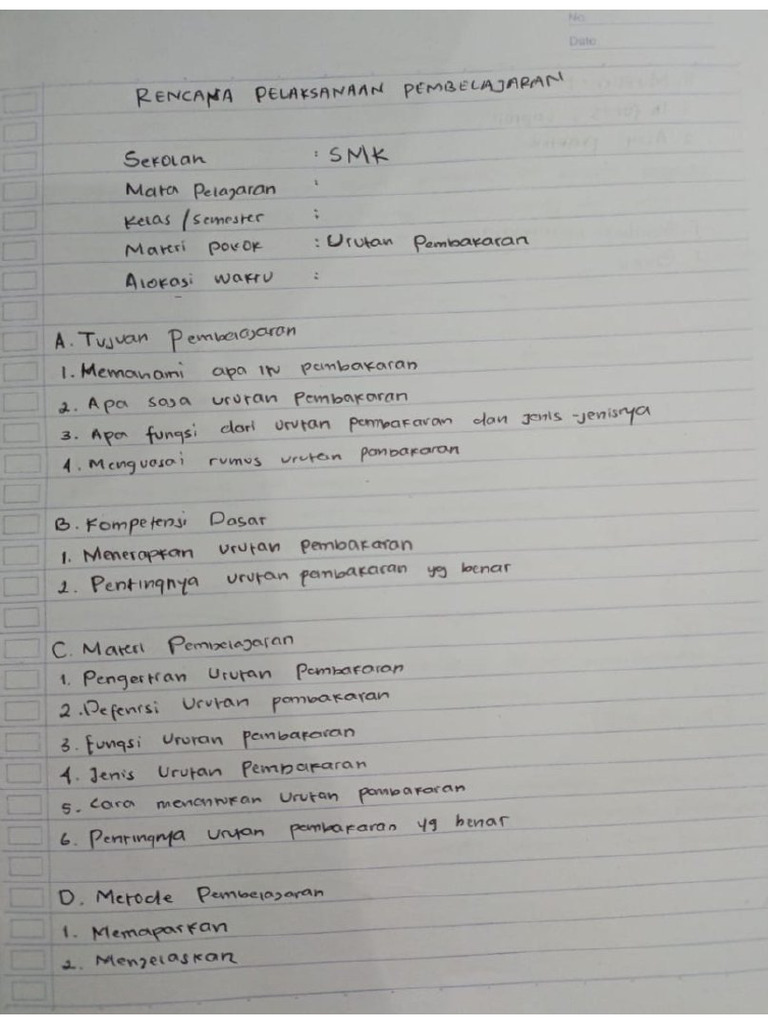 No.
Date
RENCANA PELAKSANAAN PEMBELAJARAN
Sekolah : SMK
Mata Pelajaran :
Kelas / Semester :
Materi pokok : Urutan Pembakaran
Alokasi waktu :
A. Tujuan Pembelajaran
1. Memahami apa itu pembakaran
2. Apa saja urutan Pembakaran
3. Apa fungsi dari urutan pembakaran dan jenis-jenisnya
4. Menguasai rumus urutan pembakaran
B. Kompetensi Dasar
1. Menerapkan urutan pembakaran
2. Pentingnya urutan pembakaran yg benar
C. Materi Pembelajaran
1. Pengertian Urutan Pembakaran
2. Defenisi Urutan pembakaran
3. Fungsi Urutan pembakaran
4. Jenis Urutan Pembakaran
5. Cara menentukan Urutan pembakaran
6. Pentingnya urutan pembakaran yg benar
D. Metode Pembelajaran
1. Memaparkan
2. Menjelaskan